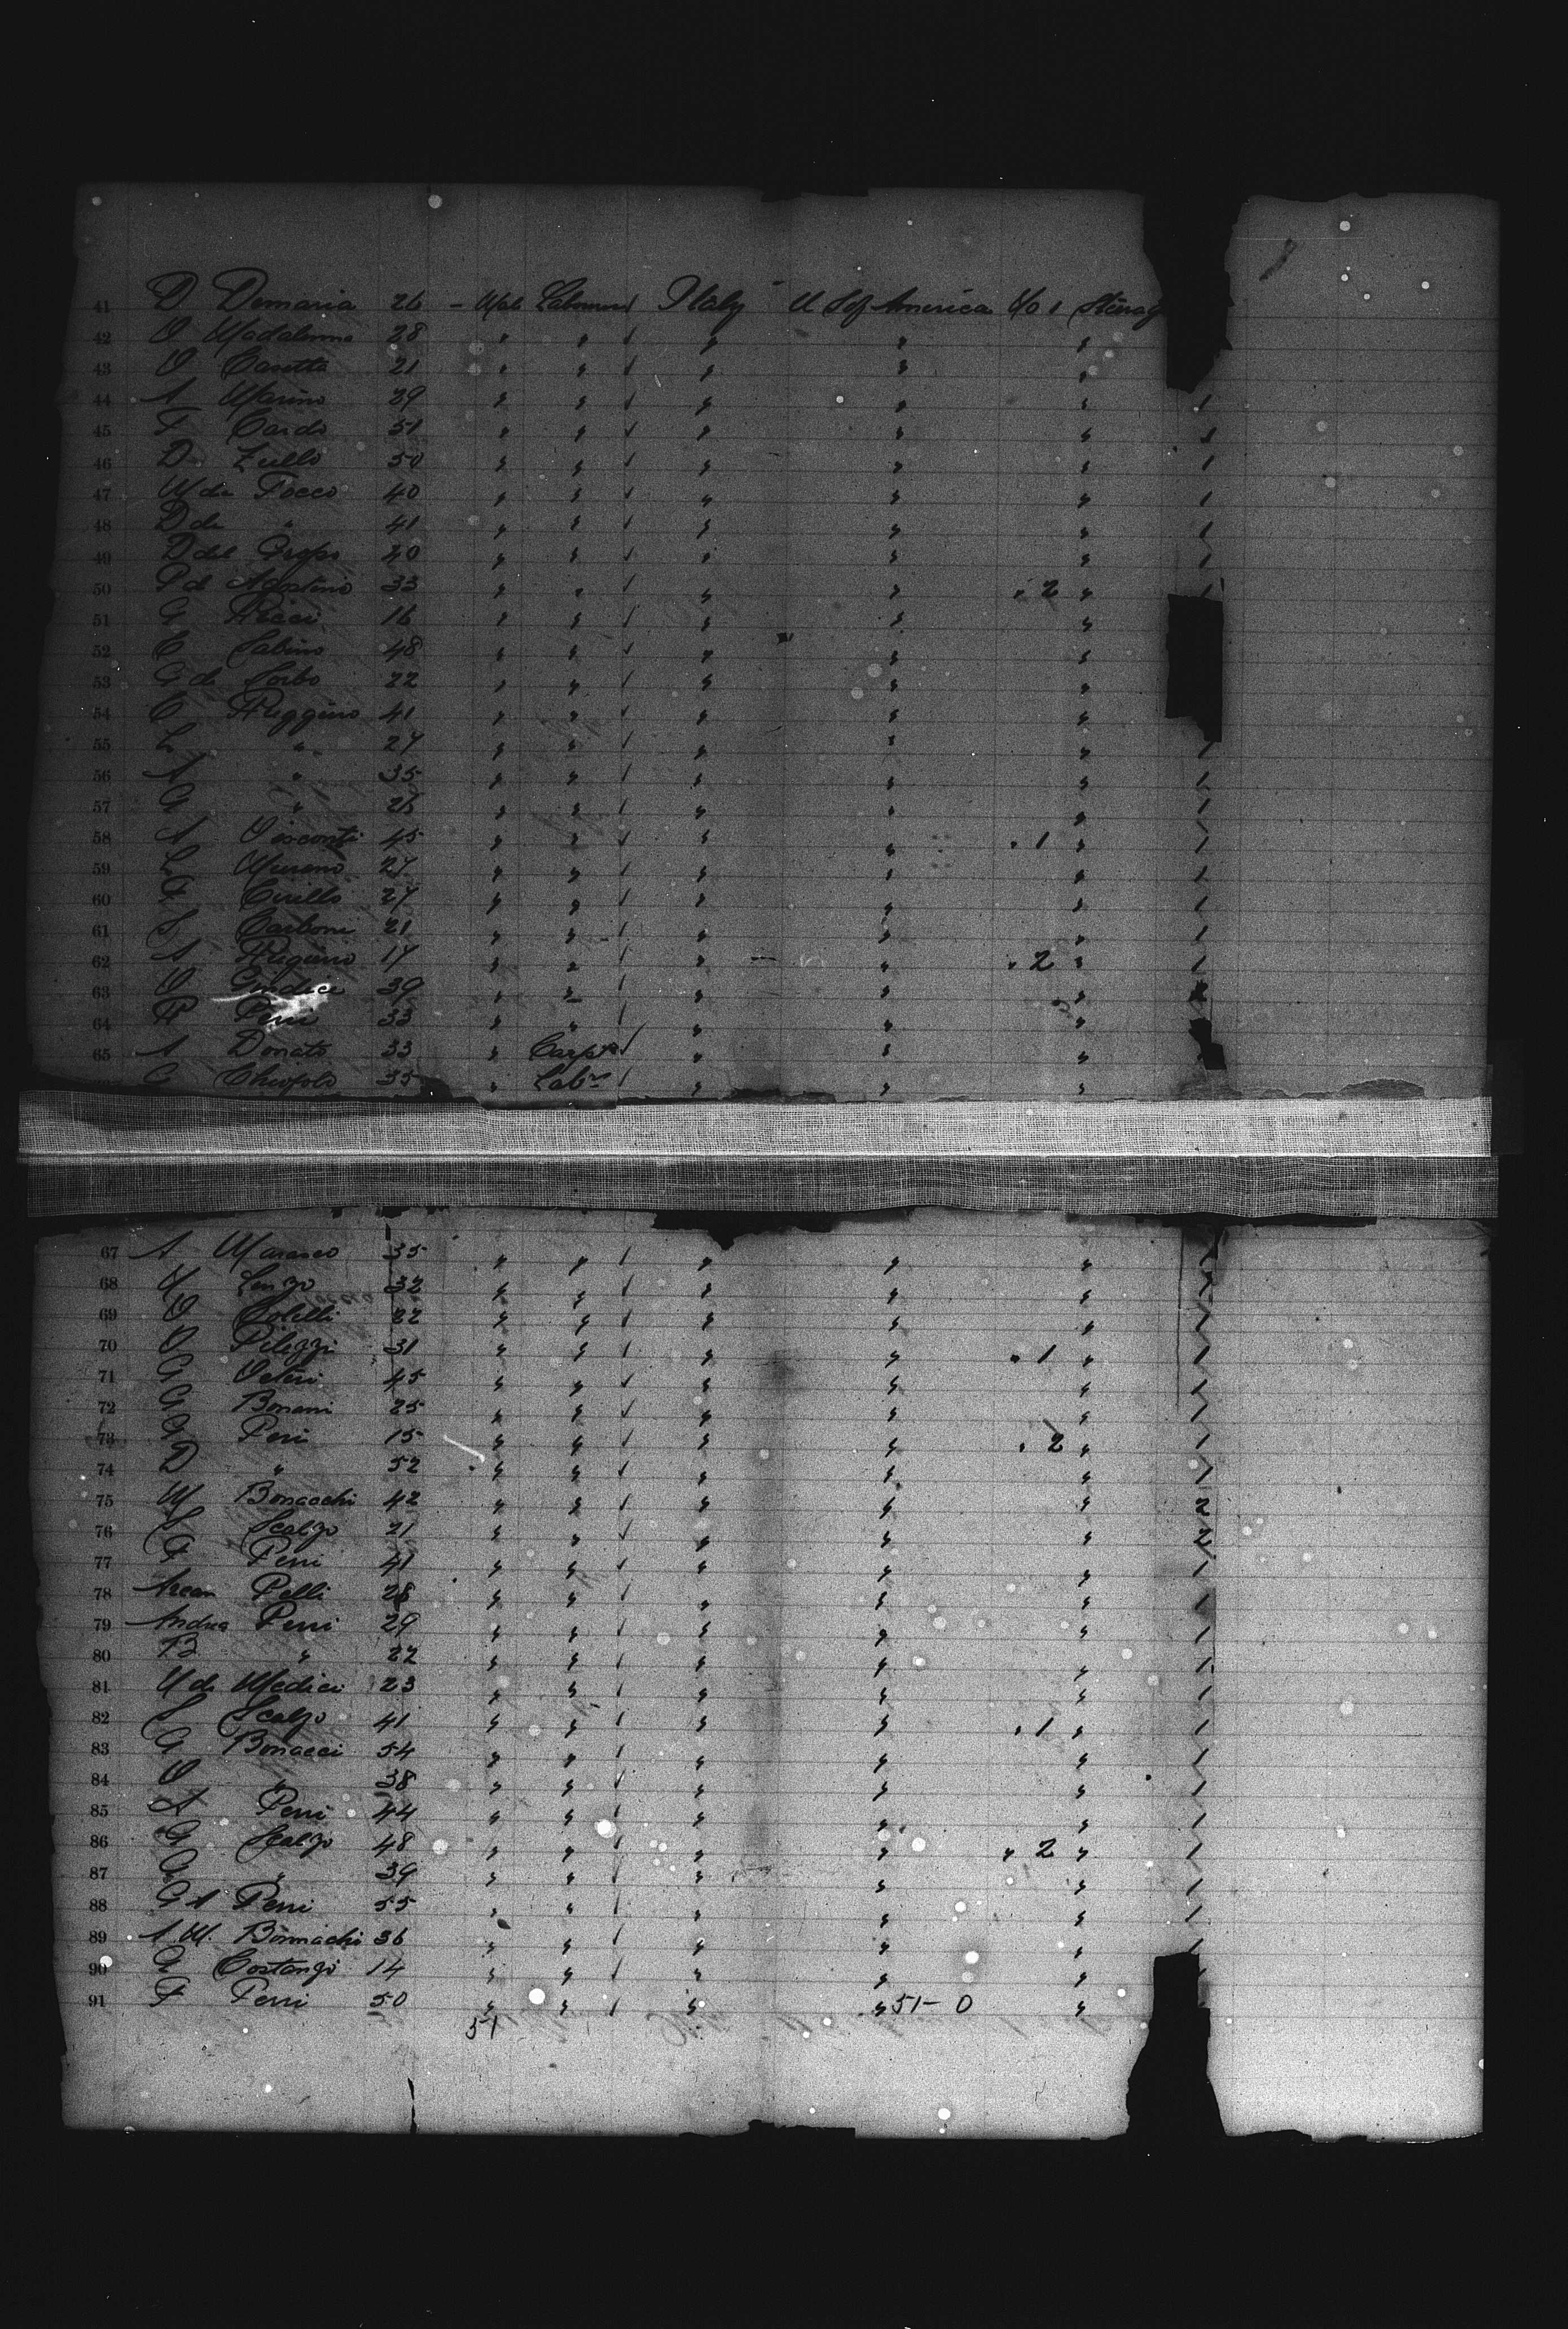 41 D Demaria 26 - Male Labourer Italy U S of America No 1 Steerag
42 O Madalemo 28 " " " " "
43 O Caretta 21 " " " " "
44 A Marino 29 " " " " " 1
45 F Cardo 51 " " " " " 1
46 D Zullo 50 " " " " " 1
47 M de Pocco 40 " " " " " 1
48 D de " 41 " " " " " 1
49 D del 40 " " " " " 1
50 P d Agostino 33 " " " " " 2 " 1
51 G Ricci 16 " " " " "
52 C Sabino 48 " " " " "
53 G de Sorbo 22 " " " " "
54 C Ruggiro 41 " " " " "
55 L " 27 " " " " " 1
56 A " 35 " " " " " 1
57 G " 26 " " " " " 1
58 A Visconti 45 " " " " " 1 " 1
59 L Mureno 27 " " " " " 1
60 F Cirillo 27 " " " " " 1
61 S Carboni 21 " " " " " 1
62 A 17 " " " " " 2 " 1
63 O Giudice 39 " " " " "
64 R Perri 33 " " " " "
65 A Donato 33 " Carpr " " "
C Chiofolo 35 " Labr " " "
67 A Marasco 35 " " " " " 1
68 Lenzo 32 " " " " " 1
69 O Colelli 22 " " " " " 1
70 O Pilezzi 31 " " " " " 1 " 1
71 G Veteri 45 " " " " " 1
72 G Bonani 25 " " " " " 1
73 G Peri 15 " " " " " 2 " 1
74 D " 52 " " " " " 1
75 M Bonacchi 42 " " " " " 2
76 S Scalzo 21 " " " " " 2
77 F Perri 41 " " " " " 1
78 Pelli 28 " " " " " 1
79 Andrea Perri 29 " " " " " 1
80 B " 22 " " " " " 1
81 de Medici 23 " " " " " 1
82 S Scalzo 41 " " " " " 1 " 1
83 G Bonacci 54 " " " " " 1
84 O " 38 " " " " " 1
85 A Perri 44 " " " " " 1
86 G Scalzo 48 " " " " " 2 " 1
87 G " 39 " " " " " 1
88 G A Perri 55 " " " " " 1
89 A.M. Bonnachi 36 " " " " " 1
90 G Costanzo 14 " " " " "
91 F Perri 50 " " " " 51 - 0 "
51